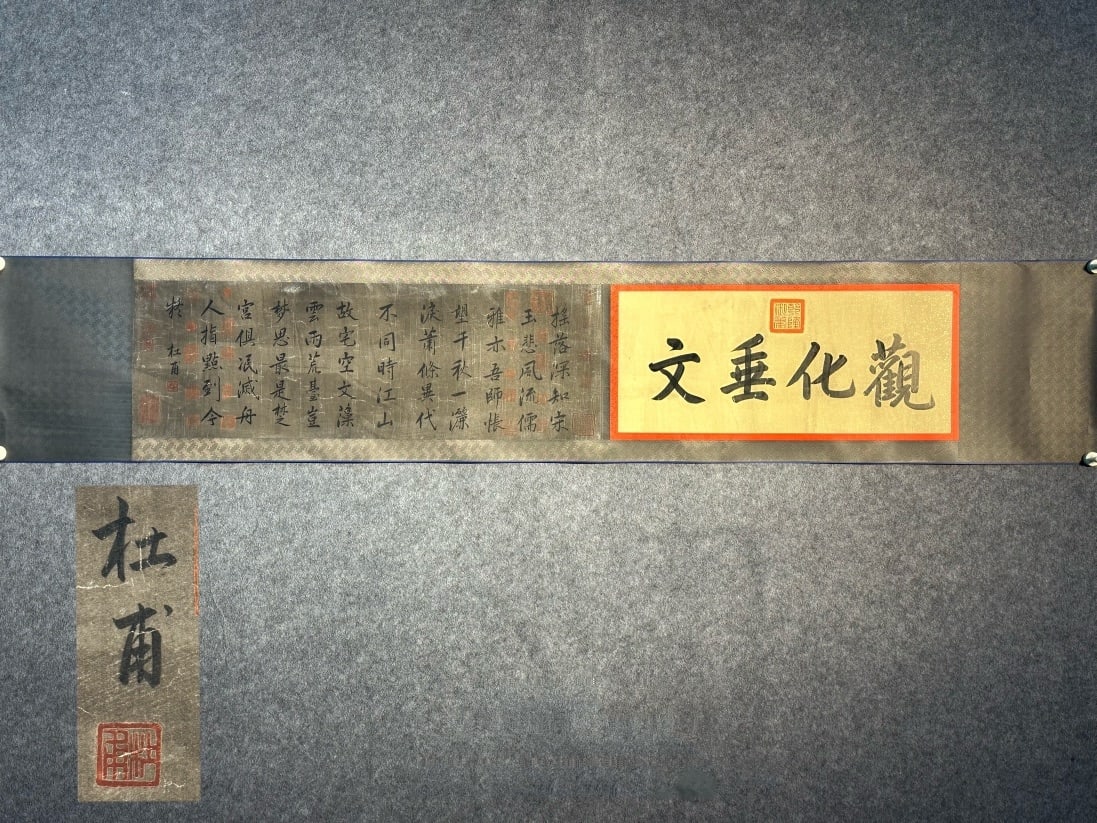 觀化垂文
搖落深知宋
玉悲風流儒
雅亦吾師悵
望千秋一灑
淚蕭條異代
不同時江山
故宅空文藻
雲雨荒臺豈
夢思最是楚
宮俱泯滅舟
人指點到今
疑 杜甫
杜甫
杜甫